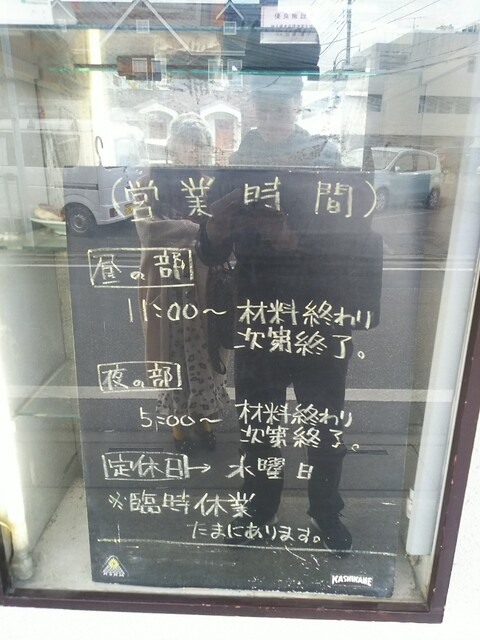 (営業時間)
昼の部
11:00〜 材料終わり
次第終了。
夜の部
5:00〜 材料終わり
次第終了。
定休日→ 水曜日
※臨時休業
たまにあります。
KASHIKAME